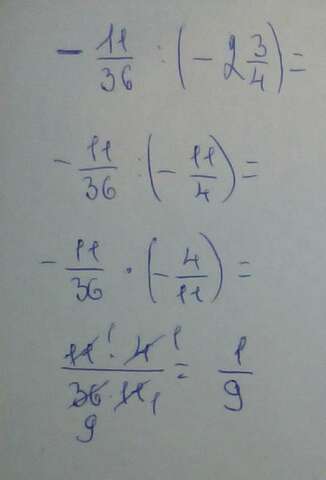 - 11/36 : (- 2 3/4) =
- 11/36 : (- 11/4) =
- 11/36 · (- 4/11) =
11 1 · 4 1 / 36 9 · 11 1 = 1/9